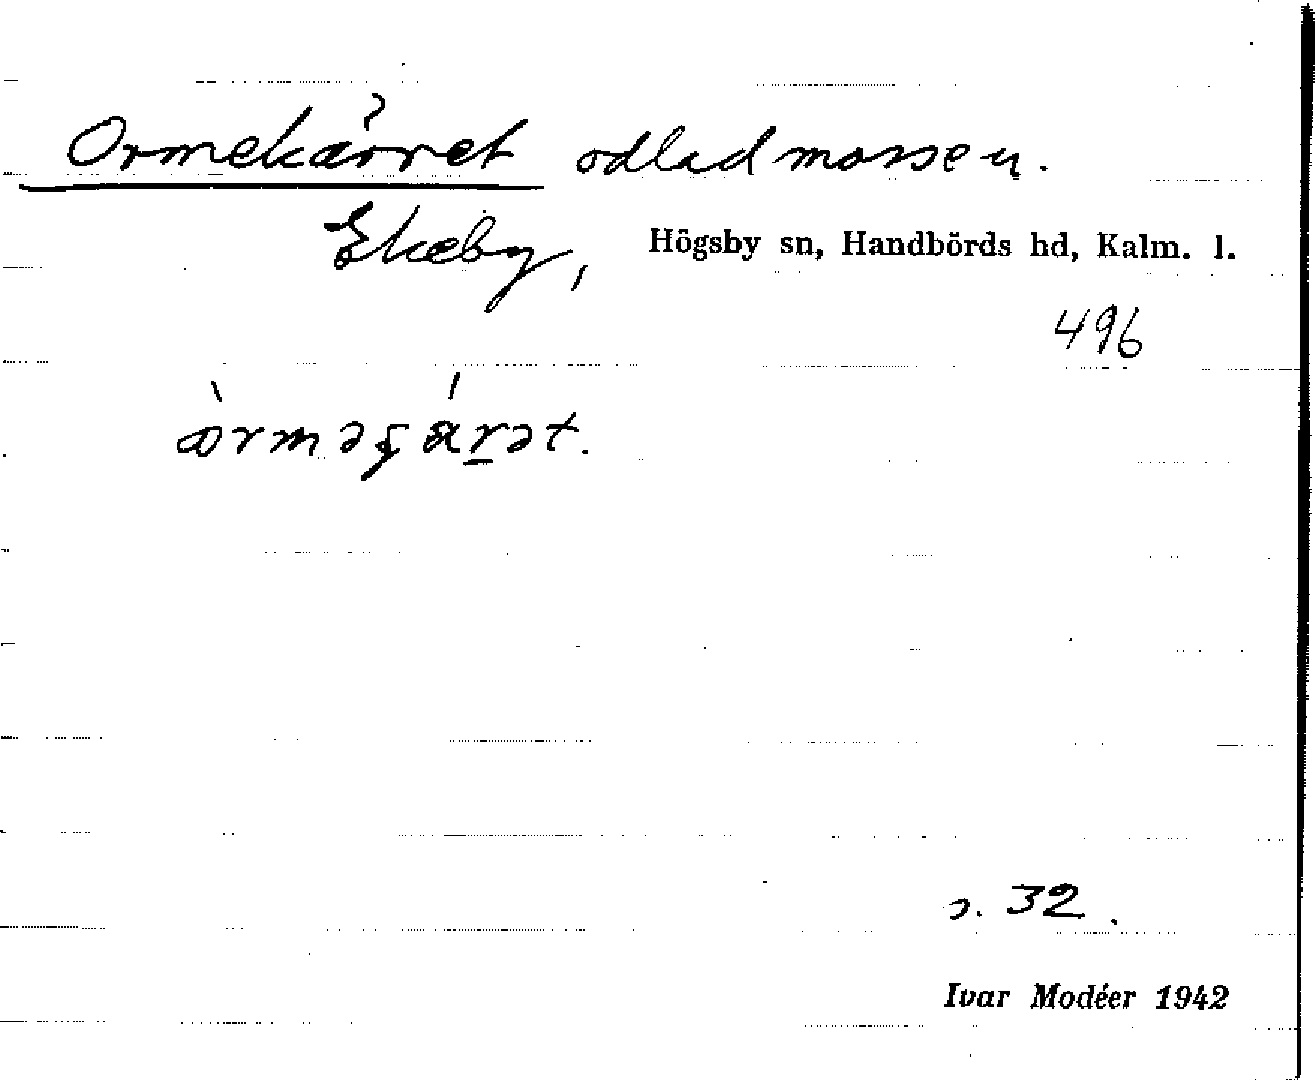 Ormekärret odlad mosse u.
Ekeby, Högsby sn, Handbörds hd, Kalm. l.
496
s. 32.
Ivar Modéer 1942